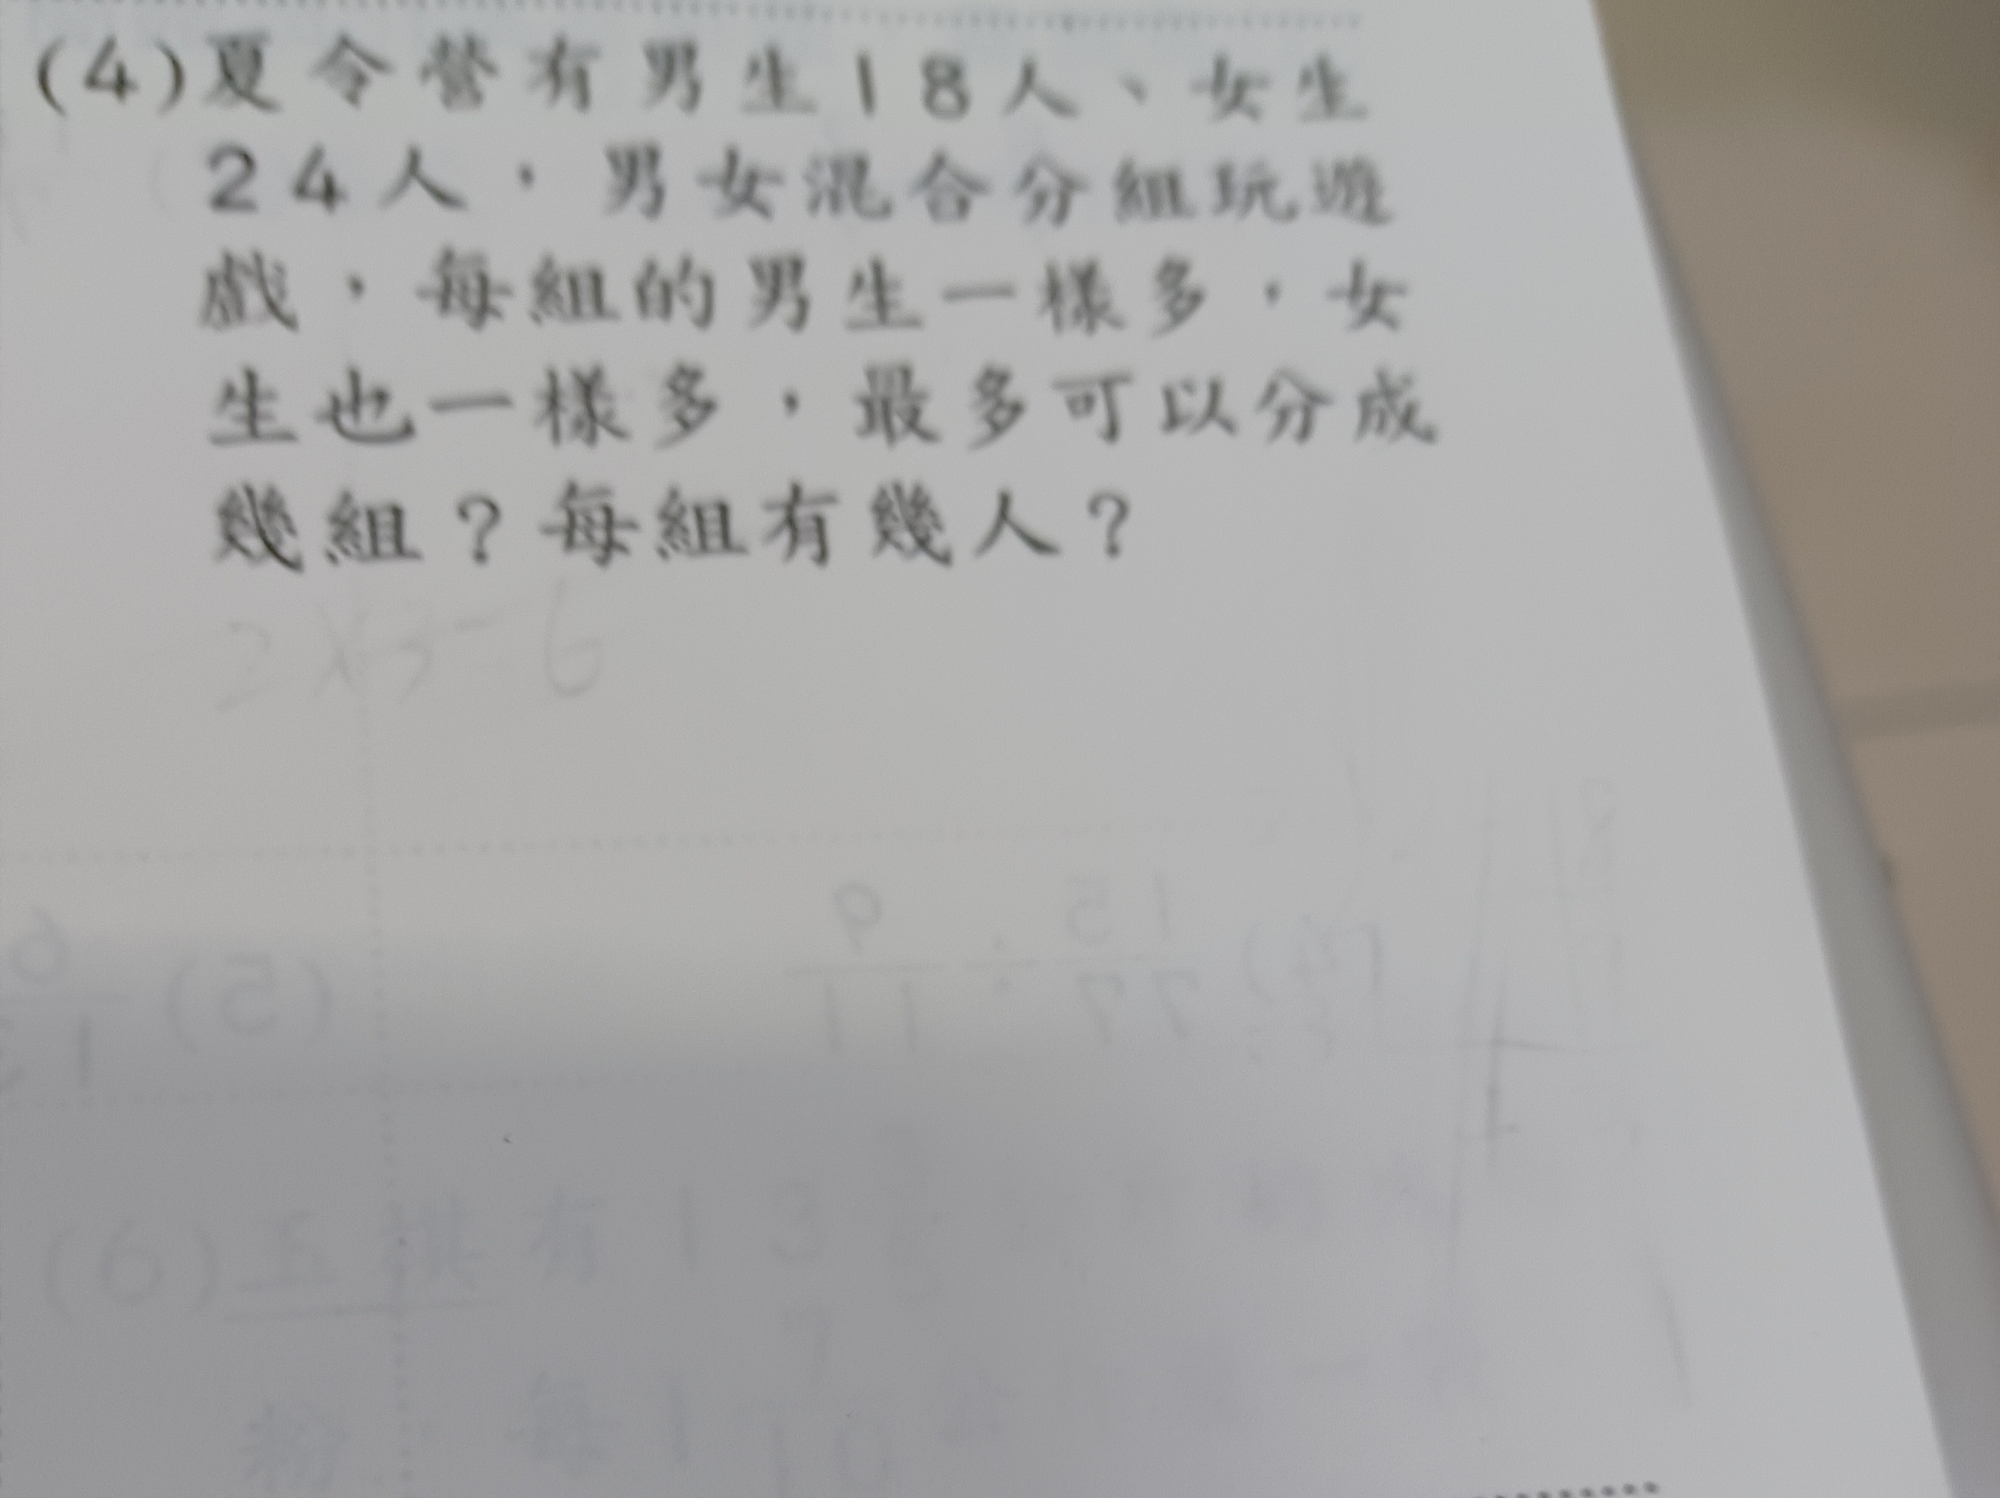 (4)夏令營有男生18人、女生
24人，男女混合分組玩遊
戲，每組的男生一樣多，女
生也一樣多，最多可以分成
幾組？每組有幾人？
2×3=6